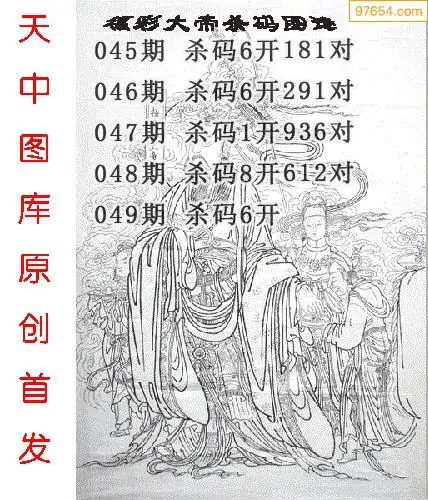 97654.com
福彩大帝杀码图谜
045期 杀码6开181对
046期 杀码6开291对
047期 杀码1开936对
048期 杀码8开612对
049期 杀码6开
天中图库原创首发